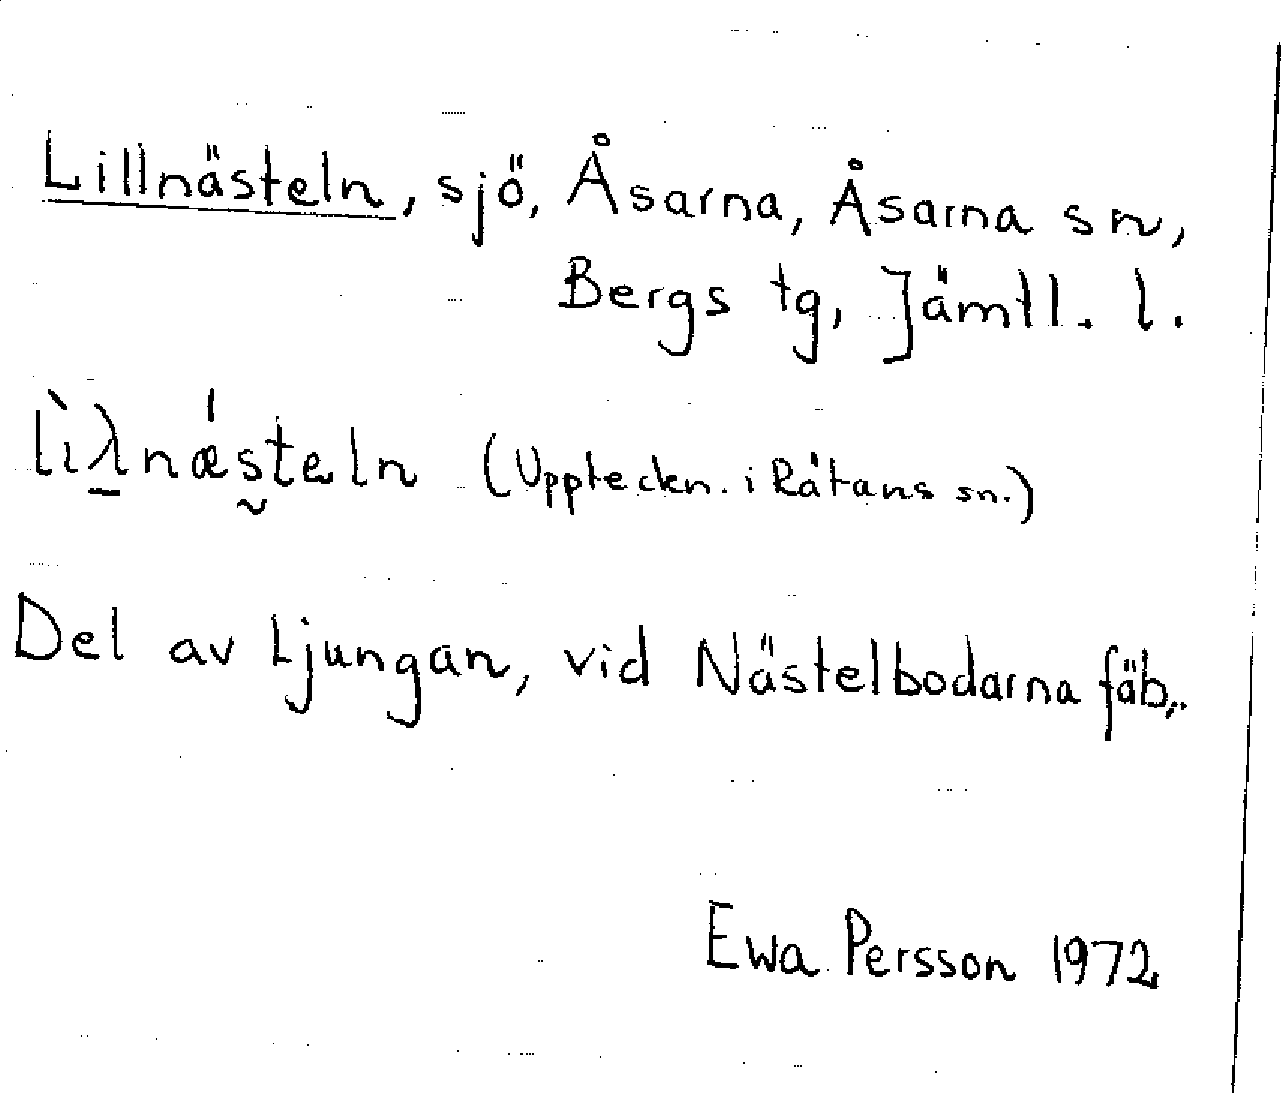 Lillnästeln, sjö, Åsarna, Åsarna sn,
Bergs tg, Jämtl. l.
lìλ̱nǽs̰teln (Uppteckn. i Råtans sn.)
Del av Ljungan, vid Nästelbodarna fäb.
Ewa Persson 1972